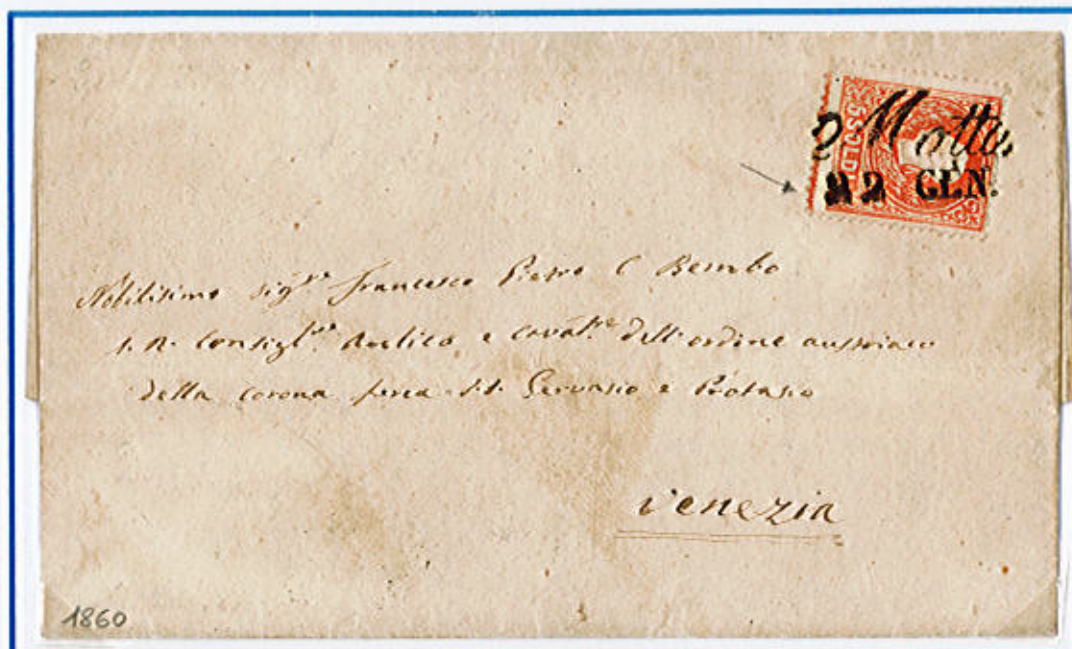 5 SOLDI
Motta
22 GEN.
Nobilissimo Sigr. Francesco Pietro C Bembo
I. R. Consiglre. Aulico e Cavalre. dell'ordine austriaco
della Corona ferea S.S. Gervasio e Protasio
Venezia
1860